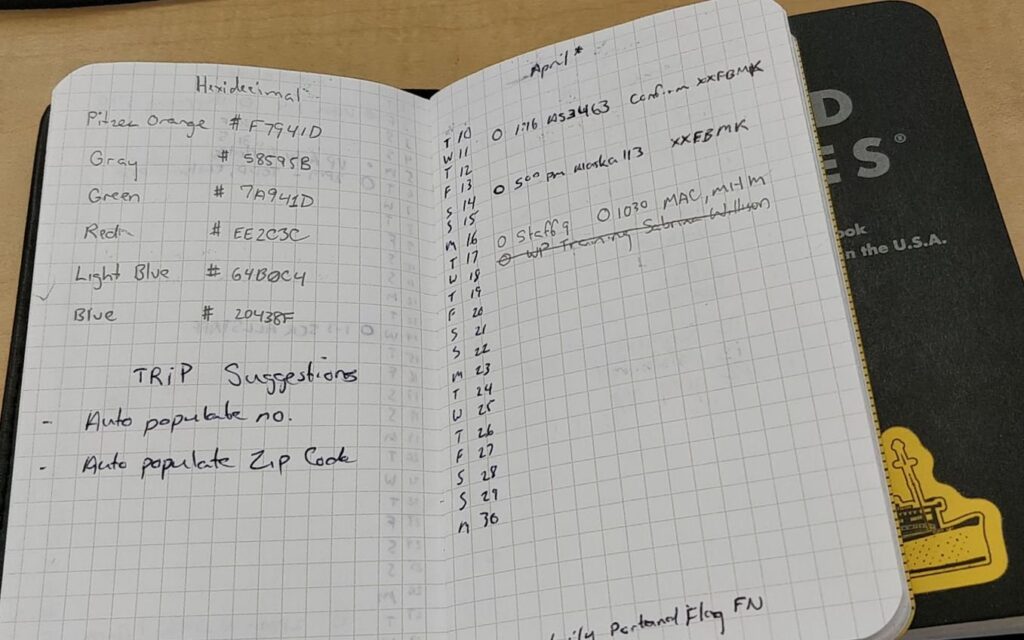 Hexidecimal
Pitzer Orange # F7941D
Gray # 58595B
Green # 7A941D
Red # EE2C3C
Light Blue # 64B0C4
Blue # 20438F
TRiP Suggestions
- Auto populate no.
- Auto populate Zip Code
April *
T 10 O 1:16 AS3463 Confirm XXFBMK
W 11
T 12
F 13 O 500 pm Alaska 113 XXEBMK
S 14
S 15
M 16 O Staff 9 O 1030 MAC, MHM
T 17 WP Training
W 18
T 19
F 20
S 21
S 22
M 23
T 24
W 25
T 26
F 27
S 28
S 29
M 30
Flag FN
D
ES®
ook
n the U.S.A.